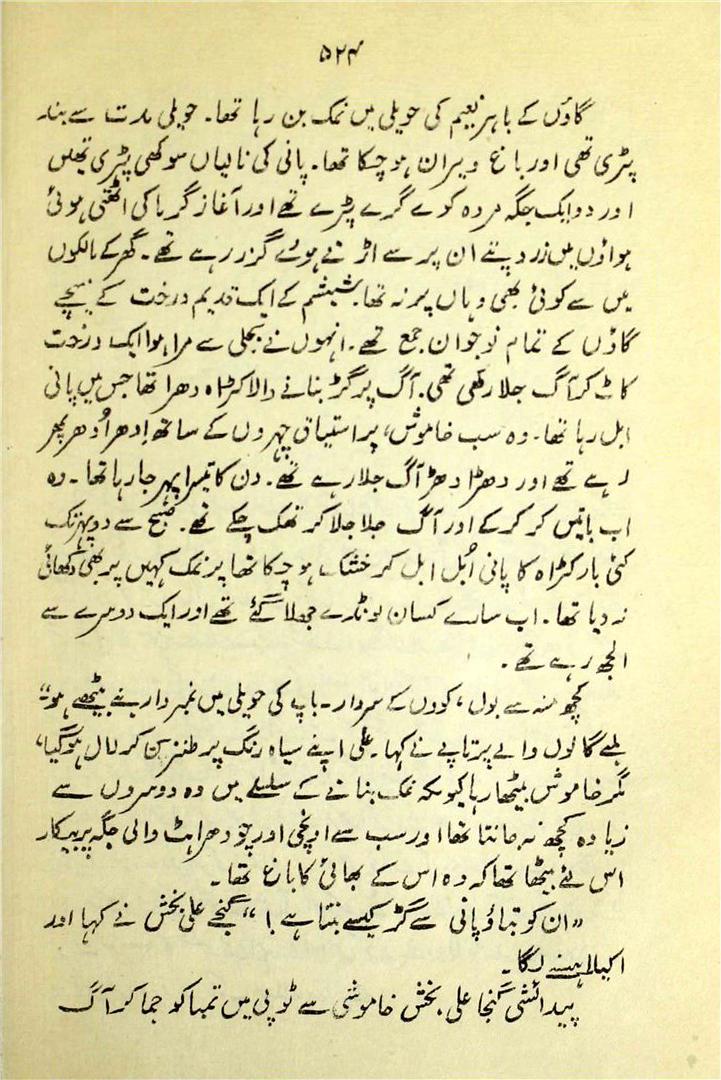 ۵۲۴
گاؤں کے باہر نعیم کی حویلی میں نمک بن رہا تھا۔ حویلی مدت سے بند
پڑی تھی اور باغ ویران ہو چکا تھا۔ پانی کی نالیاں سوکھی پڑی تھیں
اور دو ایک جگہ مردہ کوے گرے پڑے تھے اور آغاز گرما کی اٹھتی ہوئی
ہواؤں میں زرد پتے ان پر سے اڑتے ہوئے گزر رہے تھے۔ گھر کے مالکوں
میں سے کوئی بھی وہاں پر نہ تھا۔ شیشم کے ایک قدیم درخت کے نیچے
گاؤں کے تمام نوجوان جمع تھے۔ انہوں نے بجلی سے مرا ہوا ایک درخت
کاٹ کر آگ جلا رکھی تھی۔ آگ پر گڑ بنانے والا کڑاہ دھرا تھا جس میں پانی
ابل رہا تھا۔ وہ سب خاموش، پراشتیاق چہروں کے ساتھ اِدھر اُدھر پھر
رہے تھے اور دھڑا دھڑ آگ جلا رہے تھے۔ دن کا تیسرا پہر جا رہا تھا۔ وہ
اب باتیں کر کر کے اور آگ جلا جلا کر تھک چکے تھے۔ صبح سے دوپہر تک
کئی بار کڑاہ کا پانی اُبل ابل کر خشک ہو چکا تھا پر نمک کہیں پر بھی دکھائی
نہ دیا تھا۔ اب سارے کسان لونڈے جھلا گئے تھے اور ایک دوسرے سے
الجھ رہے تھے۔
کچھ منہ سے بول، کووں کے سردار۔ باپ کی حویلی میں نمبردار بنے بیٹھے ہو“
لمبے گالوں والے پرتاپے نے کہا۔ علی اپنے سیاہ رنگ پر طنز سن کر لال ہو گیا،
مگر خاموش بیٹھا رہا کیونکہ نمک بنانے کے سلسلے میں وہ دوسروں سے
زیادہ کچھ نہ جانتا تھا اور سب سے اونچی اور چودھراہٹ والی جگہ پر بیکار
اس لئے بیٹھا تھا کہ وہ اس کے بھائی کا باغ تھا۔
”ان کو بتاؤ پانی سے گڑ کیسے بنتا ہے!“ گنجے علی بخش نے کہا اور
اکیلا ہنسنے لگا۔
پیدائشی گنجا علی بخش خاموشی سے ٹوپی میں تمباکو جما کر آگ